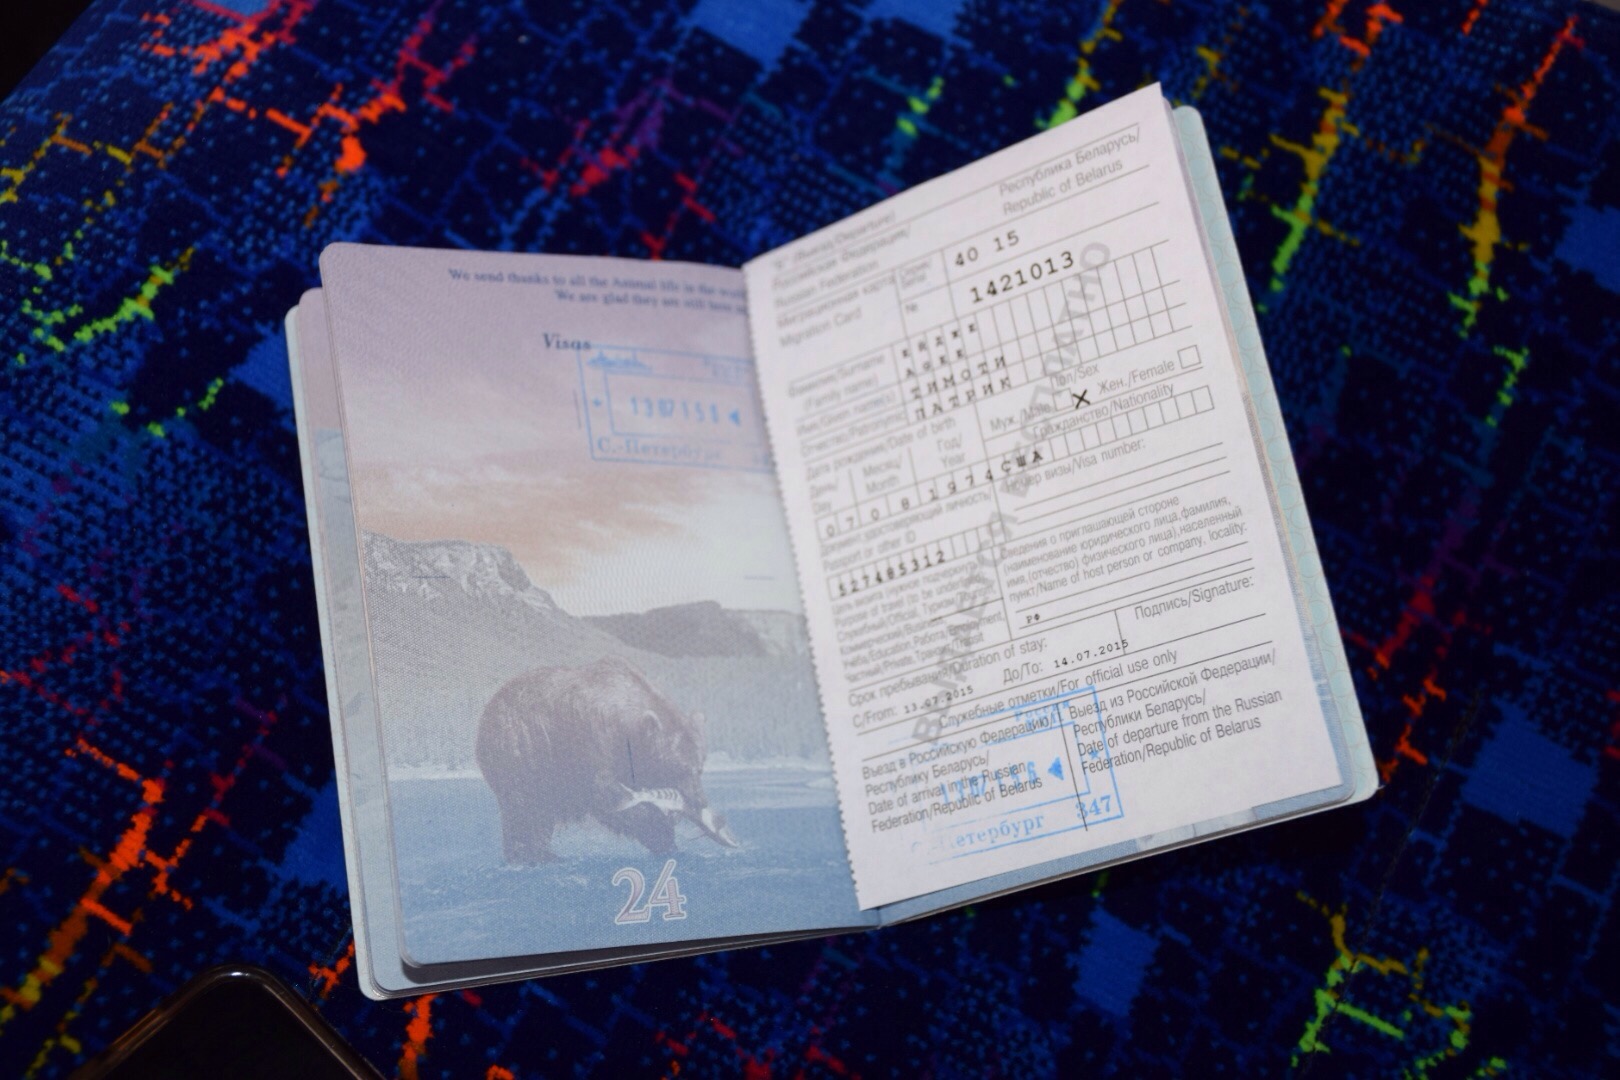 We send thanks to all the Animal life in the
We are glad they are still here
Visas
130715
С.-Петербург
24
Республика Беларусь/
Republic of Belarus
Российская Федерация/
Russian Federation
Миграционная карта
Migration Card
40 15
№ 1421013
Фамилия/Surname
(Family name)
Имя/Given name(s)
ТИМОТИ
Отчество/Patronymic
ПАТРИК
Дата рождения/Date of birth
День/
Day
Месяц/
Month
Год/
Year
07 08 1974
Пол/Sex
Муж./Male X Жен./Female
Гражданство/Nationality
США
Документ, удостоверяющий личность/
Passport or other ID
527485312
Номер визы/Visa number:
Цель визита (нужное подчеркнуть)/
Purpose of travel (to be underlined):
Служебный/Official, Туризм/Tourism,
Коммерческий/Business,
Учёба/Education, Работа/Employment,
Частный/Private, Транзит/Transit
Сведения о приглашающей стороне
(наименование юридического лица, фамилия,
имя, (отчество) физического лица), населенный
пункт/Name of host person or company, locality:
РФ
Срок пребывания/Duration of stay:
С/From: 13.07.2015 До/To: 14.07.2015
Подпись/Signature:
Служебные отметки/For official use only
Въезд в Российскую Федерацию/
Республику Беларусь/
Date of arrival in the Russian
Federation/Republic of Belarus
Выезд из Российской Федерации/
Республики Беларусь/
Date of departure from the Russian
Federation/Republic of Belarus
Россия
Петербург 347